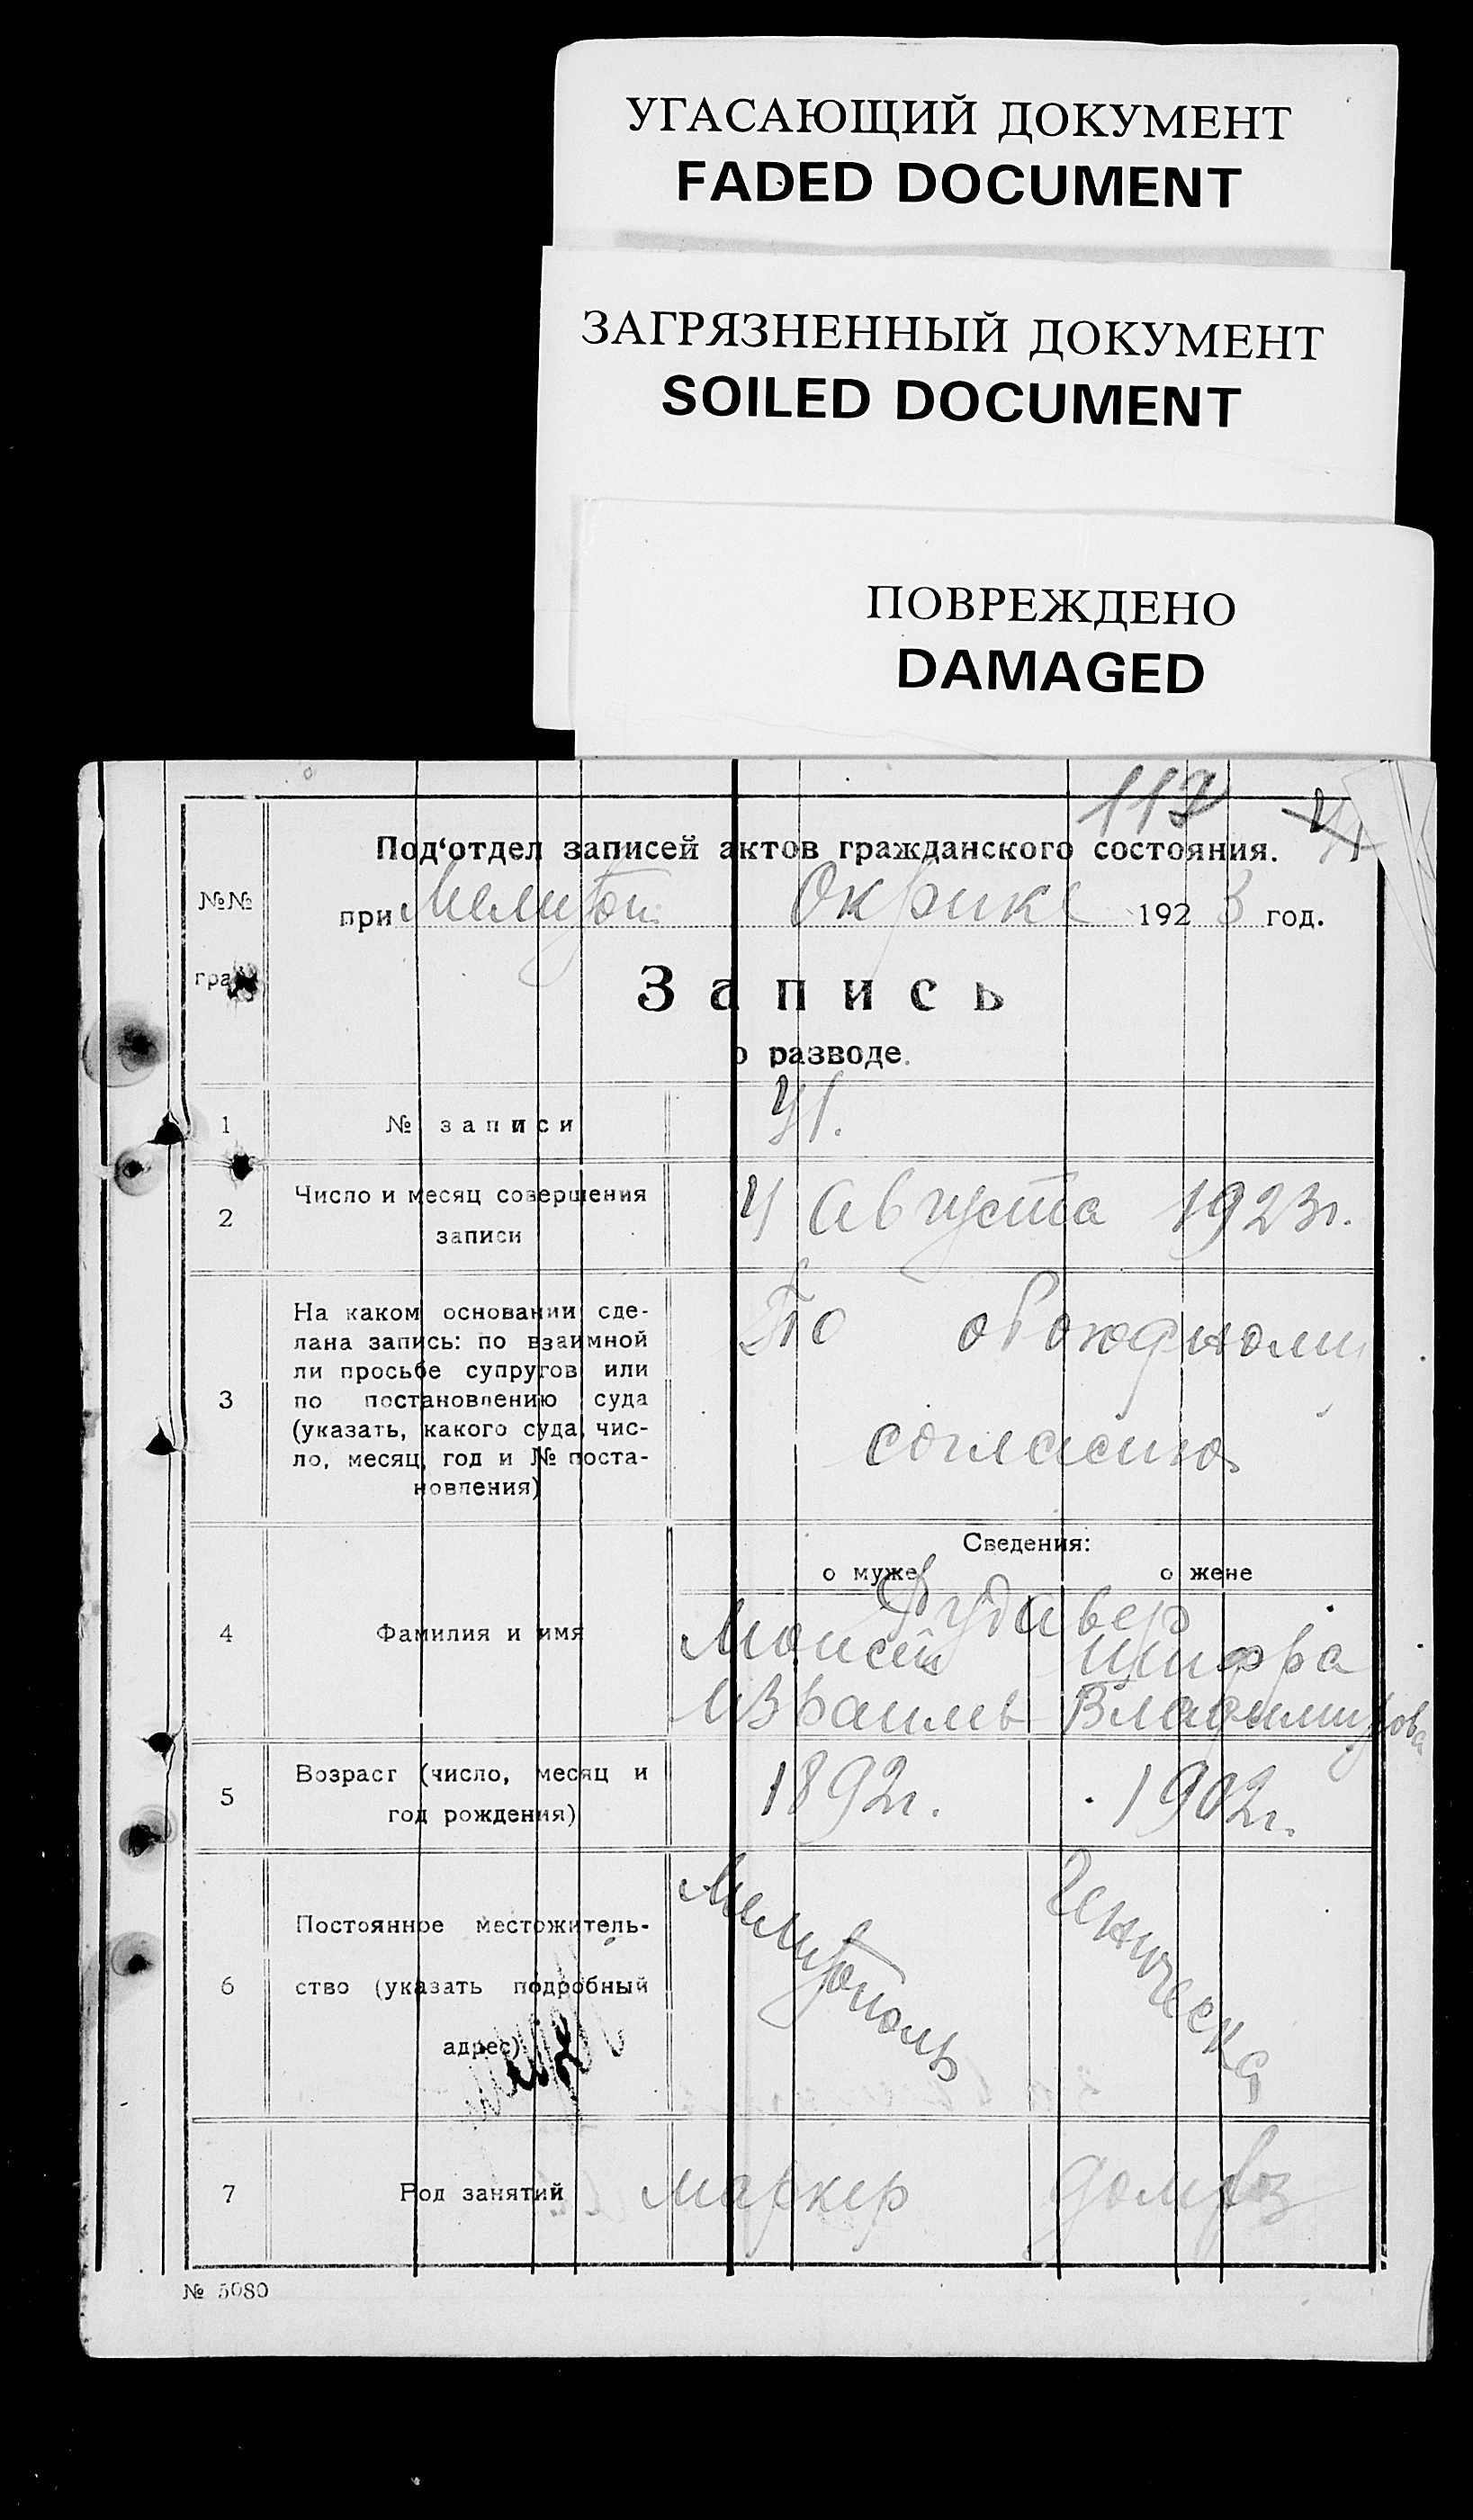 УГАСАЮЩИЙ ДОКУМЕНТ
FADED DOCUMENT
ЗАГРЯЗНЕННЫЙ ДОКУМЕНТ
SOILED DOCUMENT
ПОВРЕЖДЕНО
DAMAGED
Под‘отдел записей актов гражданского состояния.
№№
при Мелитоп. Окрике 1923 год.
Запись
о разводе.
1 № записи
2 Число и месяц совершения 4 Августа 1923г.
записи
На каком основании сде- По обоюдному
лана запись: по взаимной
ли просьбе супругов или
3 по постановлению суда
(указать, какого суда, чис- согласию
ло, месяц, год и № поста-
новления)
Сведения:
о муже о жене
4 Фамилия и имя Моисей Цифра
Израилев Владимирова
5 Возраст (число, месяц и 1892г. 1902г.
год рождения)
Постоянное местожитель- Мелитополь Геническ
6 ство (указать подробный
адрес)
7 Род занятий маркер домхоз
№ 5080